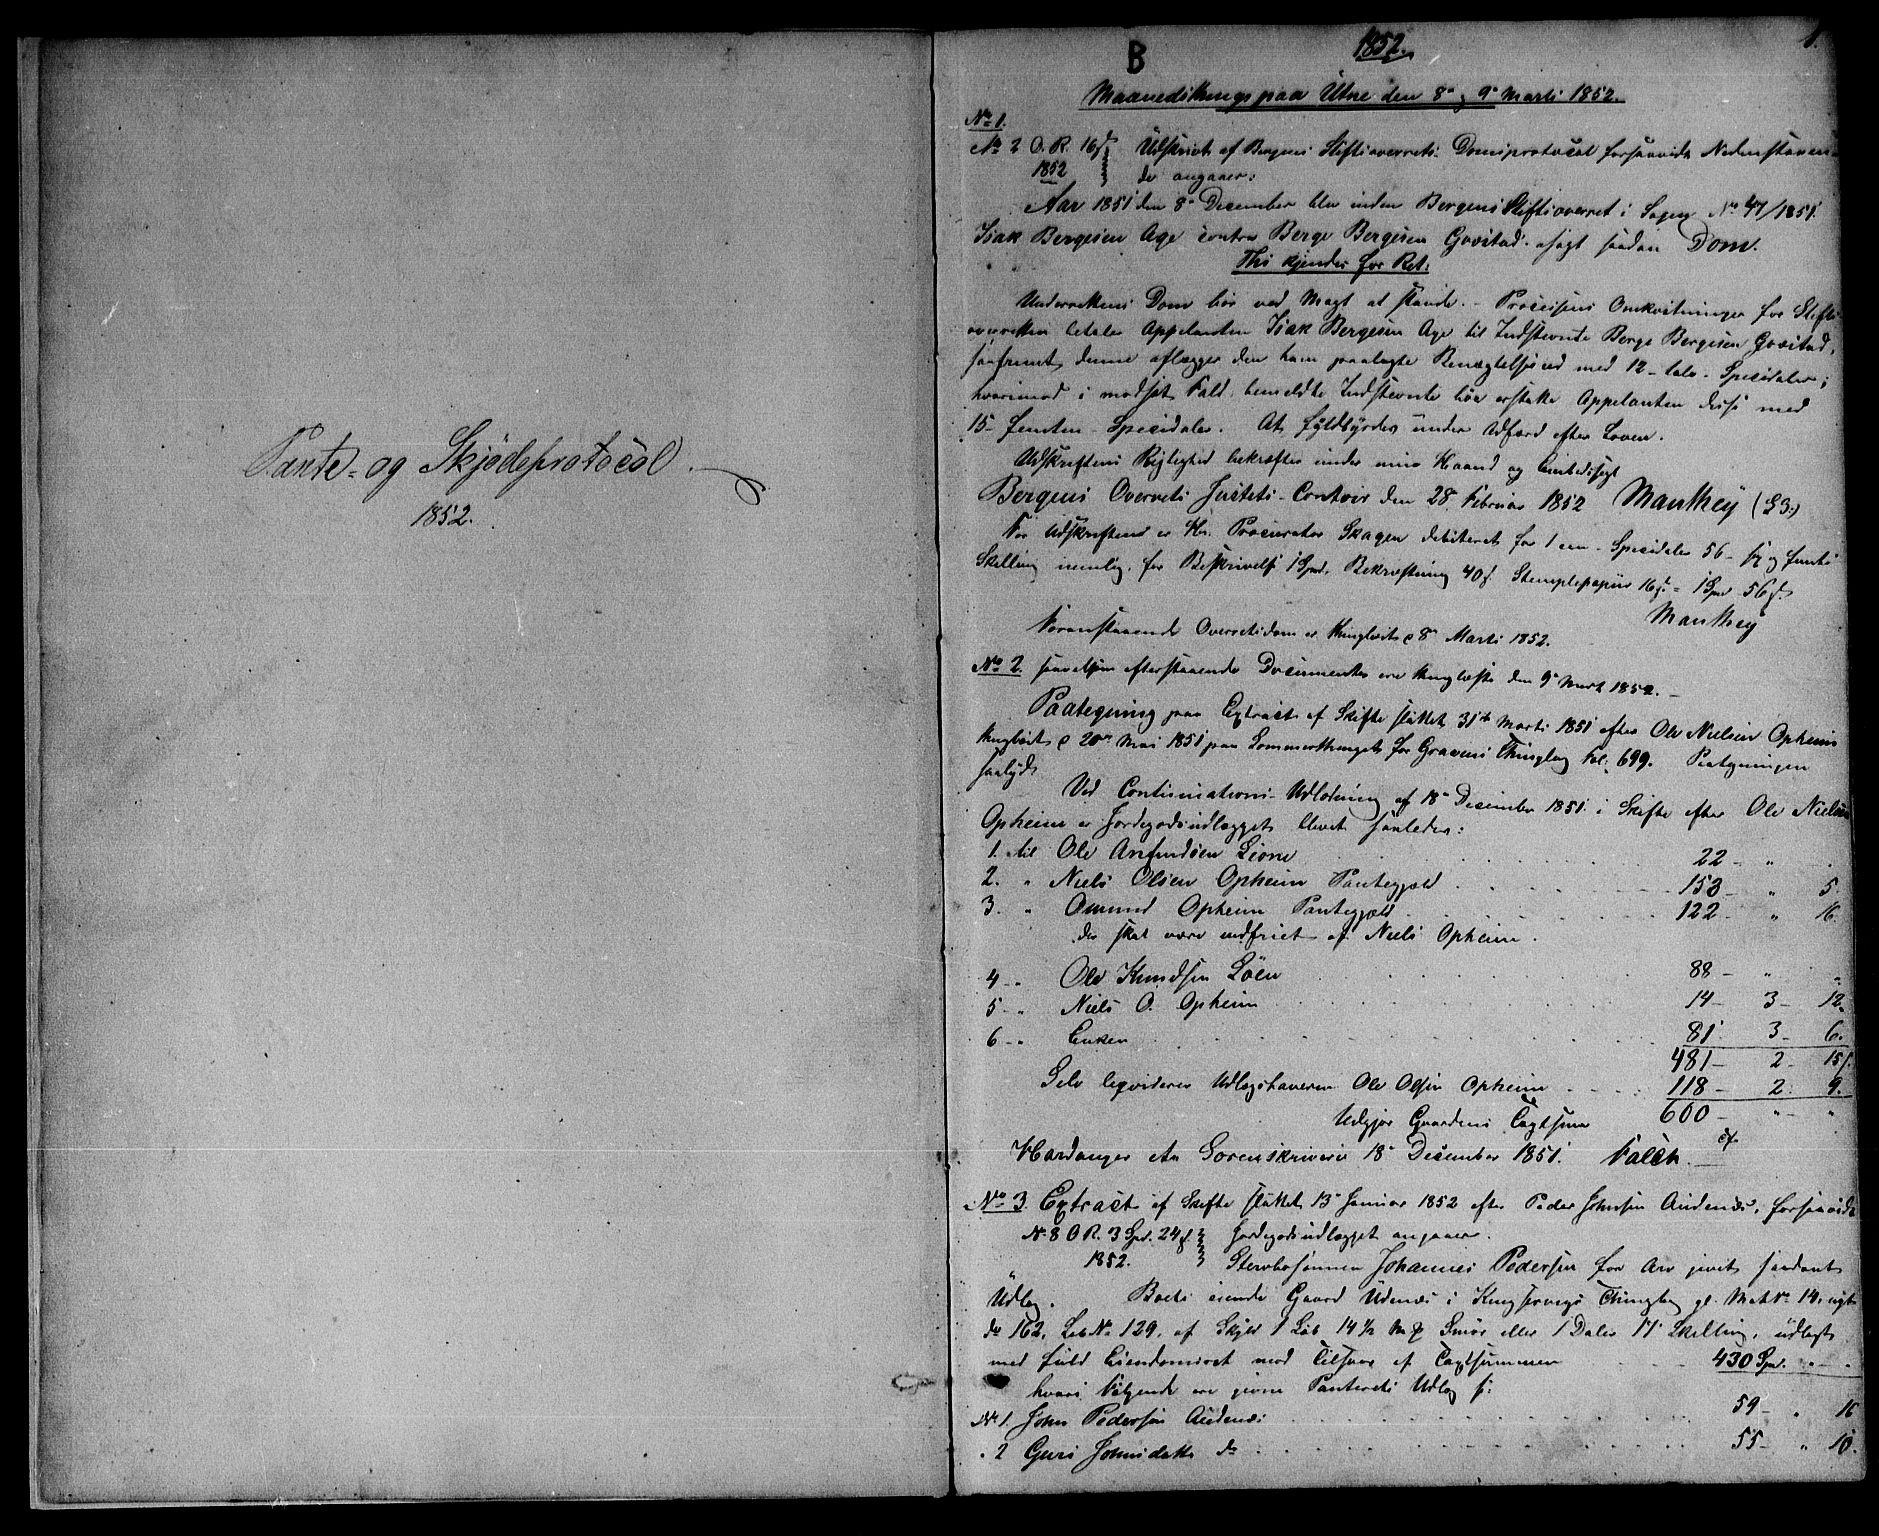 Pante- og Skjødeprotocol.
1852.
B
1852.
1.
Maanedsthings paa Utne den 8de og 9de Marts 1852.
No 1.
No 2 O. R. 16 s Udskrivt af Bergens Stiftsoverrets Domsprotocol forsaavidt Nedenstaaen-
1852 de angaaer:
Aar 1851 den 8de December blev inden Bergens Stiftsoverret i Sagen No 47/1851
Isak Bergesen Age contra Berge Bergesen Govstad afsagt saadan Dom.
Thi kjendes for Ret:
Underrettens Dom bør ved Magt at stande. - Processens Omkostninger for Stifts-
overretten betaler Appelanten Isak Bergesen Age til Indstevnte Berge Bergesen Govstad,
saafremt denne aflægger den ham paalagte Benægtelsesed med 12 - tolv - Specidaler;
hvorimod i modsat Fald bemeldte Indstevnte bør erstatte Appelanten disse med
15 - femten - Specidaler. At fyldbyrdes under Adfærd efter Loven.
Udskriftens Rigtighed bekræftes under min Haand og Embedssegl
Bergens Overrets Justits-Contoir den 28 Februar 1852 Manthey (L.S.)
For Udskriften er Hr. Procurator Skagen debiteret for 1 een - Specidaler 56 - sex og femti
Skilling nemlig, for Beskrivelse 1 Spd. Bekræftning 40 s. Stemplepapiir 16 s. = 1 Spd 56 s.
Manthey
Foranstaaende Overretsdom er thinglæst d 8de Marts 1852.
No 2. saavelsom efterstaaende Documenter ere thinglæste den 9de Marts 1852. -
Paategning paa Extract af Skifte sluttet 31te Marts 1851 efter Ole Nielsen Opheim
thinglæst d 20de Mai 1851 paa Sommerthinget for Gravens Thinglag Fol. 699. Paategningen
saalyd:
Ved Continuations-Udlodning af 18de December 1851 i Skifte efter Ole Nielsen
Opheim er Jordegodsudlægget blevet saaledes:
1. til Ole Anfindsen Lione . . . 22 - " .
2. " Niels Olsen Opheim Pantegjæld . . . 153 - " 5.
3. " Omund Opheim Pantegjæld . . . 122 - " 16
der skal være indfriet af Niels Opheim.
4 - " Ole Knudsen Løen . . . 88 - " "
5 - " Niels O. Opheim . . . 14 - 3 - 12.
6 - " Enken . . . 81 3 - 6.
481 - 2 - 15 s.
Selv liqviderer Udlægshaveren Ole Olsen Opheim . . . 118 - 2. 9.
Udgjør Gaardens Taxtsum 600 - " - "
Hardanger etc Sorenskriveri 18de December 1851. Falch.
No 3. Extract af Skifte sluttet 13de Januar 1852 efter Peder Johnsen Audenæs, forsaavidt
No 8 O R. 3 Spd. 24 s Jordegodsudlægget angaaer.
1852. Stervbosønnen Johannes Pedersen for Arv givet saadant
Udlæg. Boets eiende Gaard Udenæs i Kingservigs Thinglag gl. Mat No 14, nyt
do 162. Lob No 129. af Skyld 1 Løb 14 1/2 M S Smør eller 1 Daler 11 Skilling, udlagt
med fuld Eiendomsret mod Tilsvar af Taxtsummen . . . 430 Spd. " - "
hvori Følgende ere givne Panterets Udlæg s:
No 1. John Pedersen Audenæs . . . 59 - " 16
" 2 Guri Johnsdatter do . . . 55 - " 10.